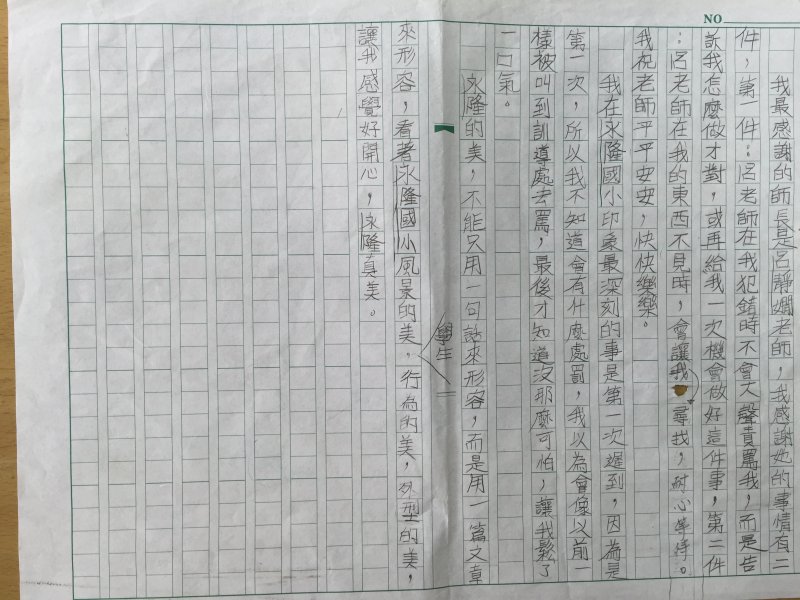 NO
我最感謝的師長是呂靜嫻老師，我感謝她的事情有二
件，第一件：呂老師在我犯錯時不會大聲責罵我，而是告
訴我怎麼做才對，或再給我一次機會做好這件事，第二件
：呂老師在我的東西不見時，會讓我尋找，耐心等待。
我祝老師平平安安，快快樂樂。
我在永隆國小印象最深刻的事是第一次遲到，因為是
第一次，所以我不知道會有什麼處罰，我以為會像以前一
樣被叫到訓導處去罵，最後才知道沒那麼可怕，讓我鬆了
一口氣。
永隆的美，不能只用一句話來形容，而是用一篇文章
來形容，看著永隆國小風景的美，學生行為的美，外型的美，
讓我感覺好開心，永隆真美。